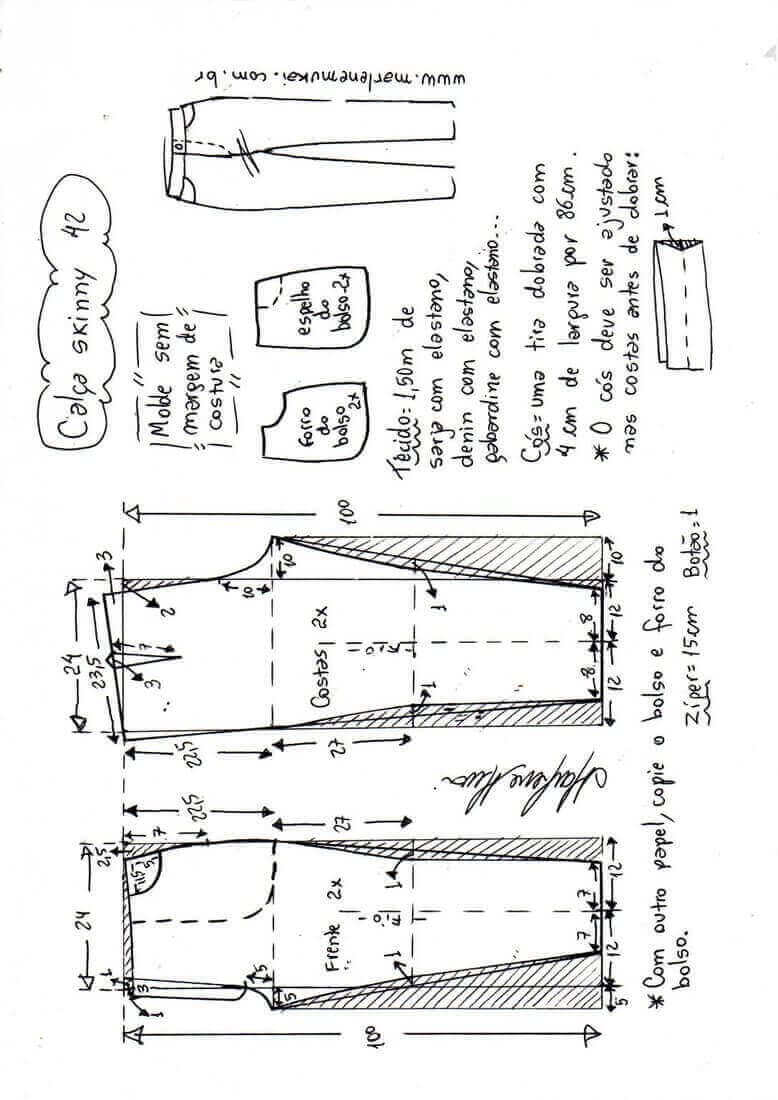 Calça skinny 42
Molde sem
margem de
costura
www.marlenemukai.com.br
forro
do
bolso
2x
espelho
do
bolso 2x
Tecido = 1,50m de
sarja com elastano,
denin com elastano,
gabardine com elastano...
Cós = uma tira dobrada com
4 cm de largura por 86cm.
* O cós deve ser ajustado
nas costas antes de dobrar:
1cm
100
24
2,5
7
11,5
5
1
3
1
22,5
27
Frente 2x
5
5
1
1
7
7
12
12
5
100
24
23,5
3
7
3
2
22,5
27
Costas 2x
10
10
1
1
8
8
12
12
10
* Com outro papel, copie o bolso e forro do
bolso.
Zíper = 15cm Botão = 1